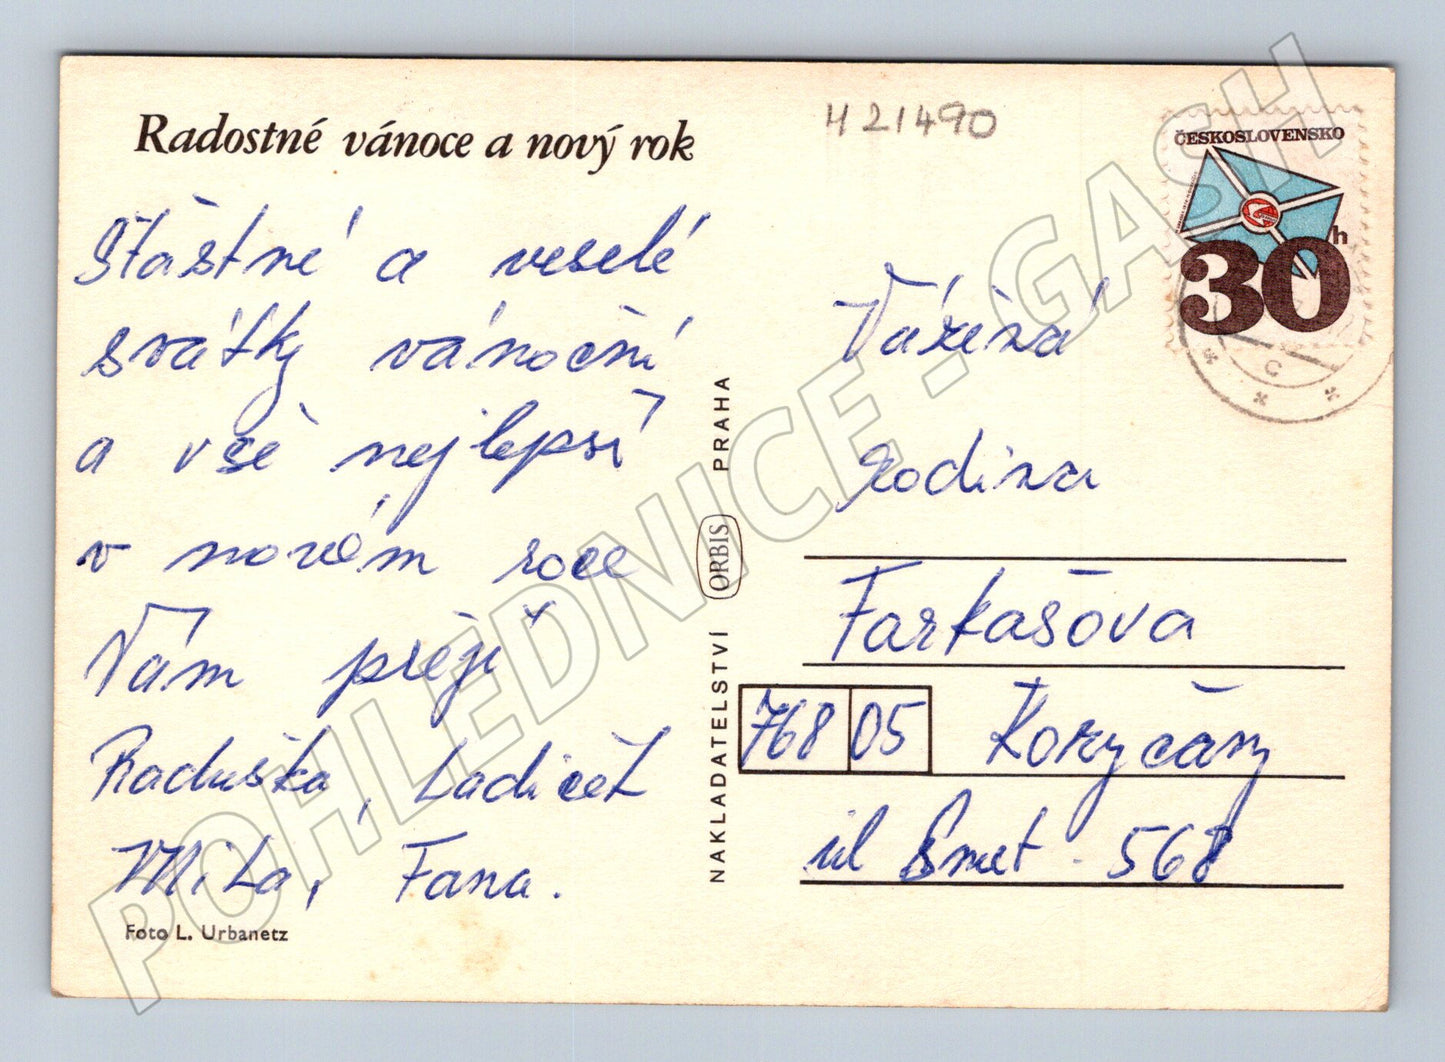 Radostné vánoce a nový rok
Šťastné a veselé
svátky vánoční
a vše nejlepší
v novém roce
Vám přeji
Raduška, Ladiček
Mila, Fana.
Foto L. Urbanetz
NAKLADATELSTVÍ ORBIS PRAHA
H 21490
ČESKOSLOVENSKO
30h
C
Vážená
rodina
Farkašova
768 05 Koryčany
ul Smet. 568
POHLEDNICE - GASH